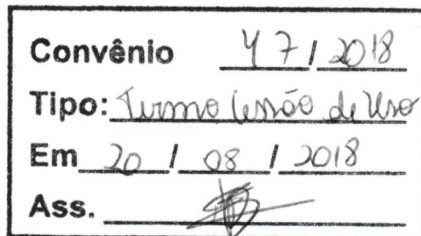 Convênio 47/2018
Tipo: Termo Cessão de Uso
Em 20 / 08 / 2018
Ass.